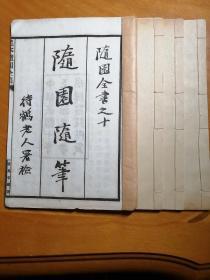 隨園全書之十
隨園隨筆
待鶴老人署檢